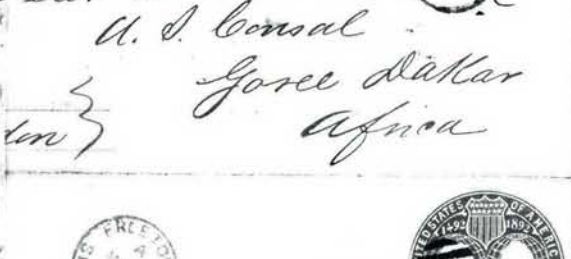 U. S. Consal
Goree Dakar
don }
Africa
FREETO
4
UNITED STATES OF AMERICA
1492 1892